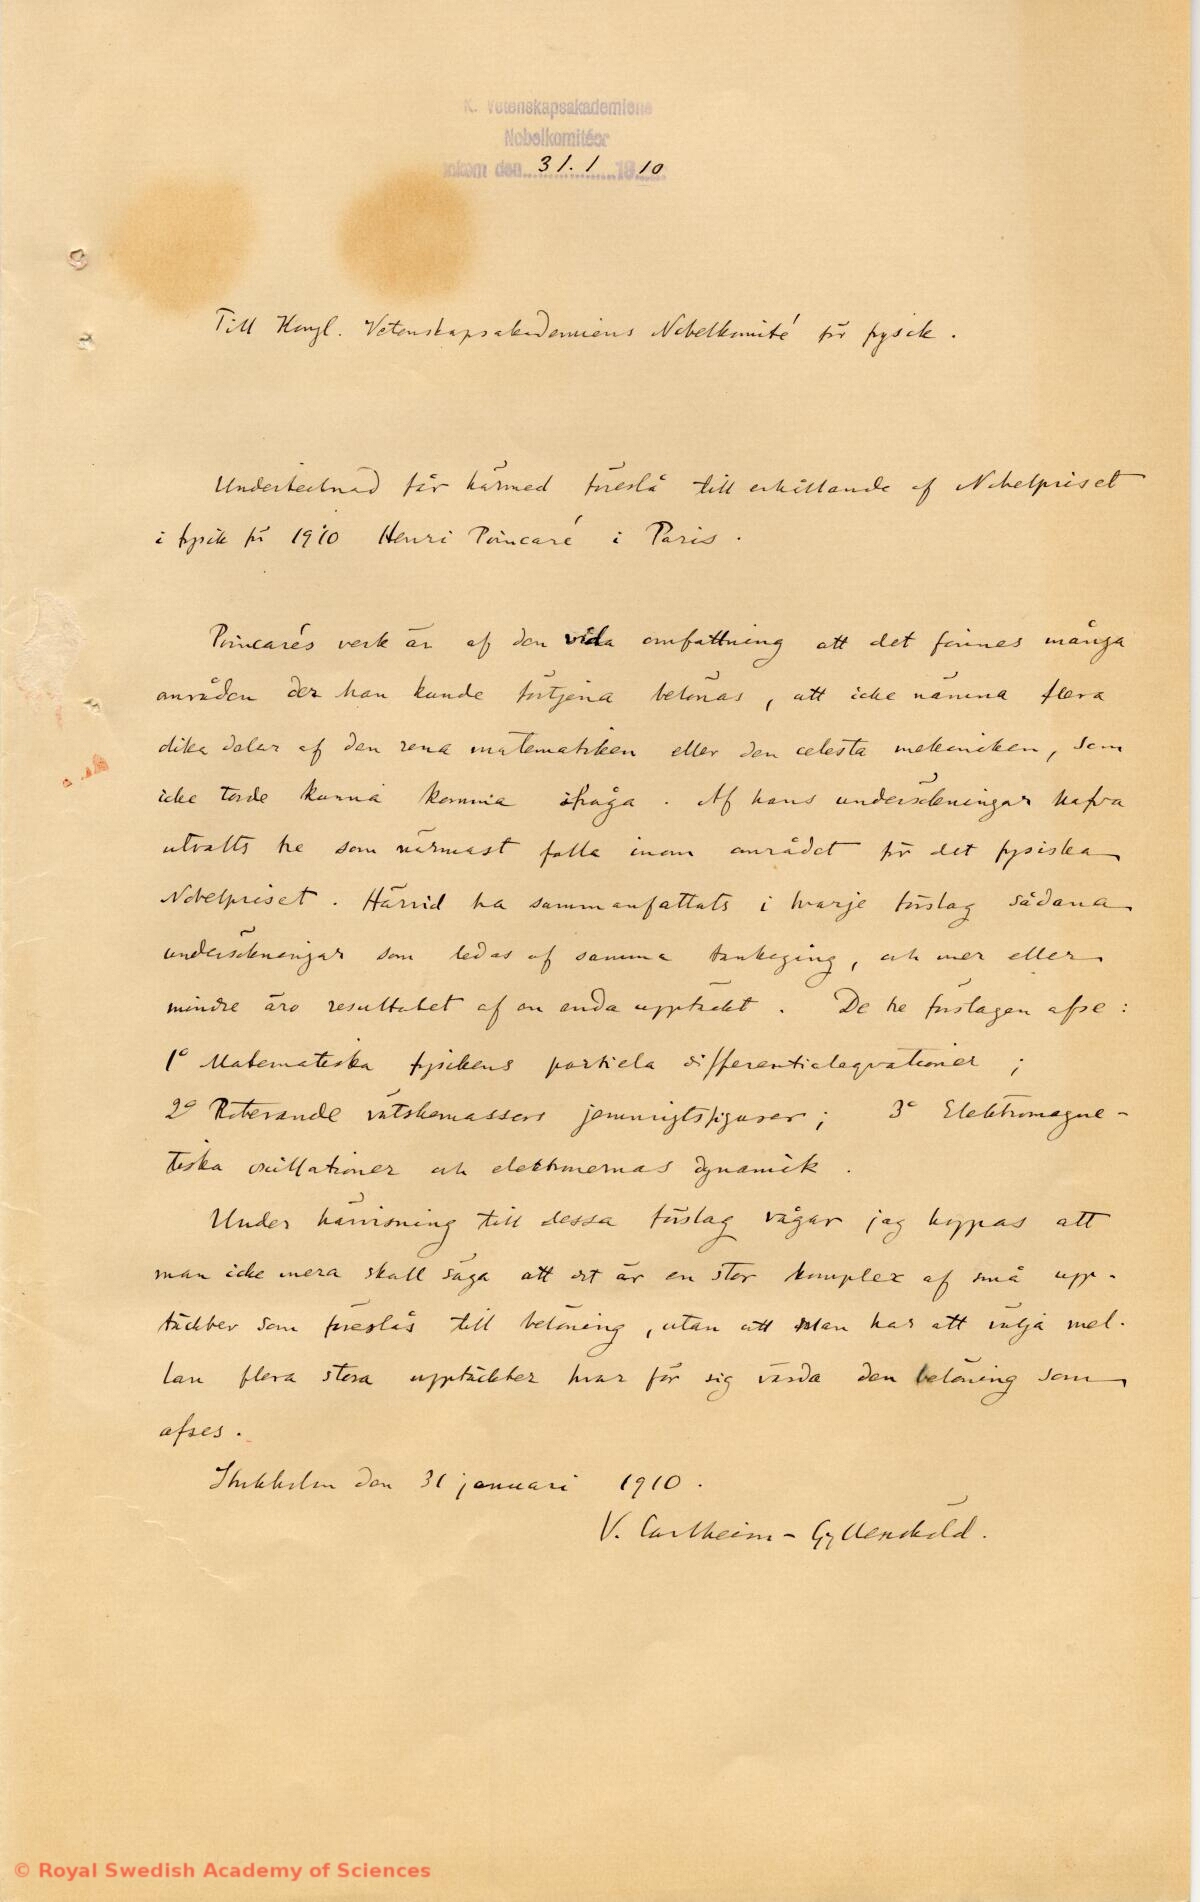 K. Vetenskapsakademiens
Nobelkomitéer
Inkom den 31.1 1910
Till Kongl. Vetenskapsakademiens Nobelkomité för fysik.
Undertecknad får härmed föreslå till erhållande af Nobelpriset
i fysik för 1910 Henri Poincaré i Paris.
Poincarés verk är af den vida omfattning att det finnes många
områden der han kunde förtjena belönas, att icke nämna flera
olika delar af den rena matematiken eller den celesta mekaniken, som
icke torde kunna komma ifråga. Af hans undersökningar hafva
utvalts tre som närmast falla inom området för det fysiska
Nobelpriset. Härvid ha sammanfattats i hvarje förslag sådana
undersökningar som ledas af samma tankegång, och mer eller
mindre äro resultatet af en enda upptäckt. De tre förslagen afse:
1° Matematiska fysikens partiela differentialeqvationer;
2° Roterande vätskemassors jemnvigtsfigurer; 3° Elektromagne-
tiska oscillationer och elektronernas dynamik.
Under hänvisning till dessa förslag vågar jag hoppas att
man icke mera skall säga att det är en stor komplex af små upp-
täckter som föreslås till belöning, utan att man har att välja mel-
lan flera stora upptäckter hvar för sig värda den belöning som
afses.
Stockholm den 31 januari 1910.
V. Carlheim-Gyllensköld.
© Royal Swedish Academy of Sciences